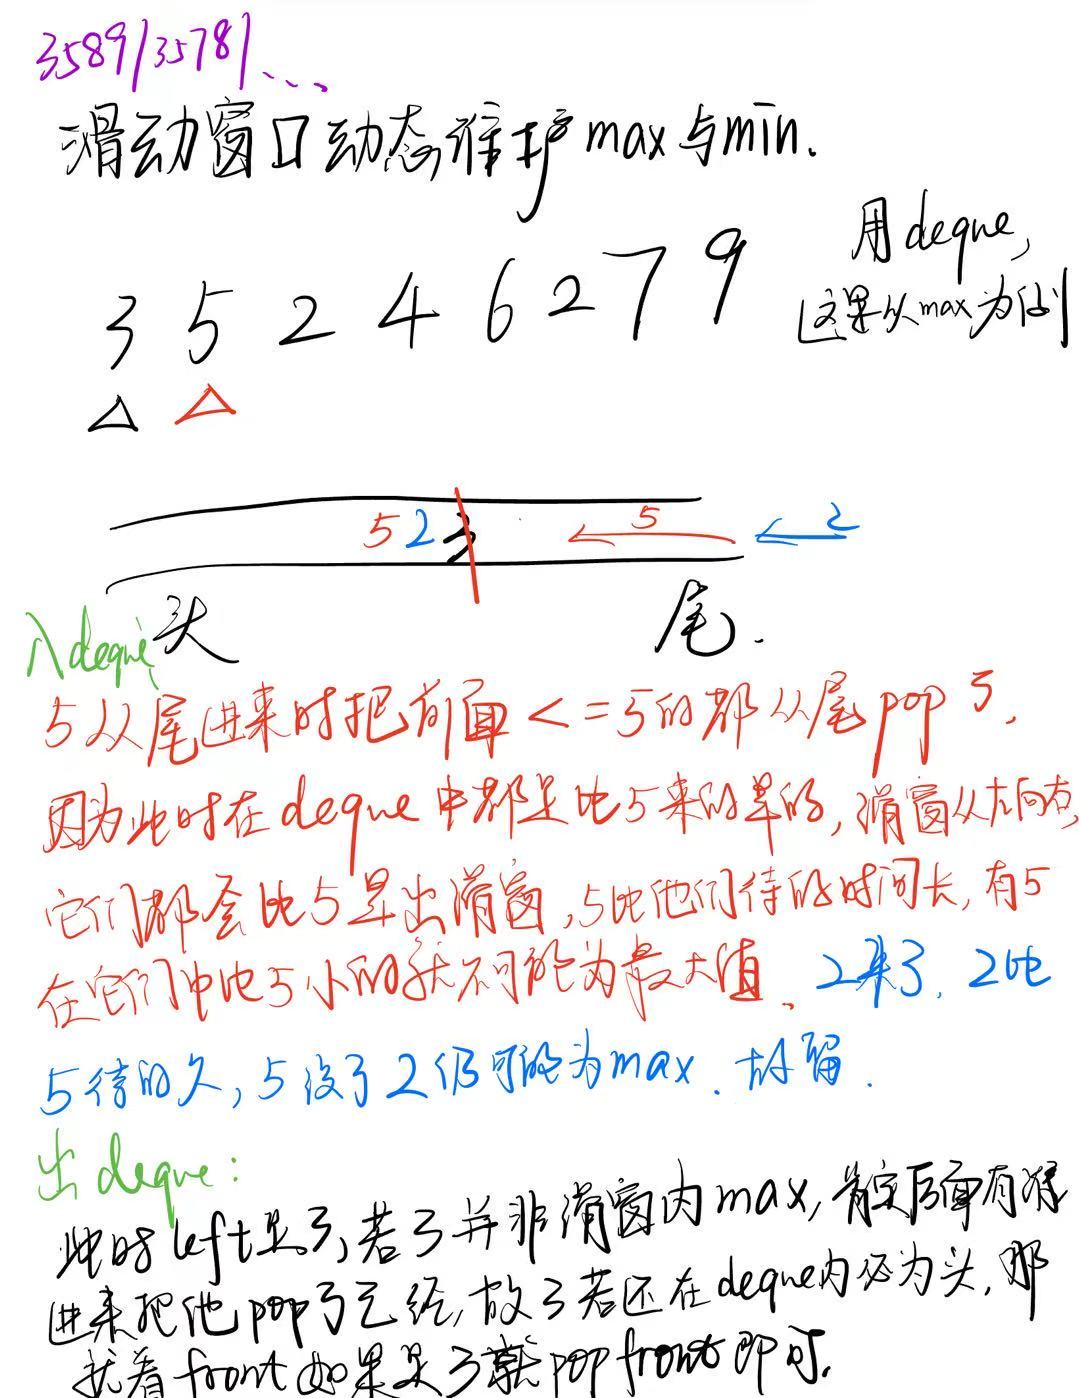 3589/3578/、、、
滑动窗口动态维护max与min.
用deque,
这里以max为例
3 5 2 4 6 2 7 9
5 2 3 5 2
头 尾.
入deque
5从尾进来时把前面<=5的都从尾pop了,
因为此时在deque中都是比5来的早的,滑窗从左向右,
它们都会比5早出滑窗,5比他们待的时间长,有5
在它们中比5小的就不可能为最大值、2来了,2比
5待的久,5没了2仍可能为max、故留.
出deque:
此时left是3,若3并非滑窗内max,肯定后面有某
进来把他pop了已经,故3若还在deque内必为头,那
就看front如果是3就pop front即可.